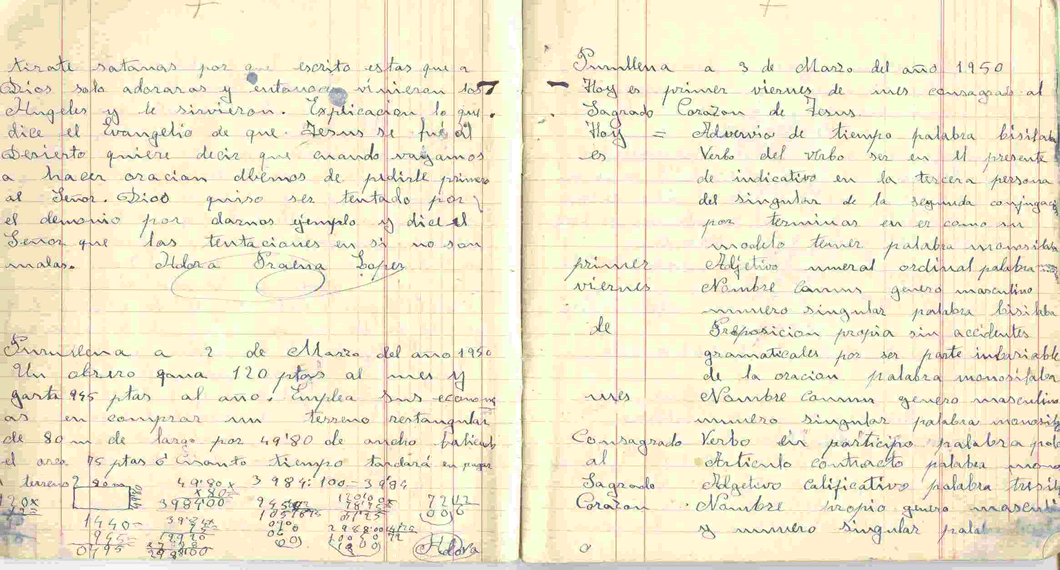 tirate satanas por que escrito estas que a
Dios solo adoraras y entonces vinieron los
Angeles y le sirvieron. Explicacion lo que
dice el Evangelio de que Jesus se fue al
Desierto quiere decir que cuando vayamos
a hacer oracion dbemos de pedirle primero
al Señor. Dios quiso ser tentado por
el demonio por darnos ejemplo y dice el
Señor que las tentaciones en si no son
malas. Adora Praena Lopez
Purullena a 2 de Marzo del año 1950
Un obrero gana 120 ptas al mes y
gasta 945 ptas al año. Emplea sus econom
as en comprar un terreno restangular
de 80 m de largo por 49'80 de ancho
el area 75 ptas ¿Cuanto tiempo tardará en pagar
terreno? 80m 49'80 x 3984:100=39'84
x 80
398400
1440-
945
0495
Adora
Purullena a 3 de Marzo del año 1950
Hoy es primer viernes de mes consagrado al
Sagrado Corazon de Jesus.
Hoy = Advervio de tiempo palabra bisilaba
es Verbo del verbo ser en el presente
de indicativo en la tercera persona
del singular de la segunda conjugaci
por terminas en er como su
modelo temer palabra monosilaba
primer Adjetivo numeral ordinal palabra
viernes Nombre comun genero masculino
numero singular palabra bisilaba
de Preposicion propia sin accidentes
gramaticales por ser parte inbariable
de la oracion palabra monosilaba
mes Nombre comun genero masculino
numero singular palabra monosil
Consagrado Verbo en participo palabra poli
al Articulo contracto palabra mono
Sagrado Adgetivo calificativo palabra trisil
Corazon Nombre propio genero mascul
y numero singular palab